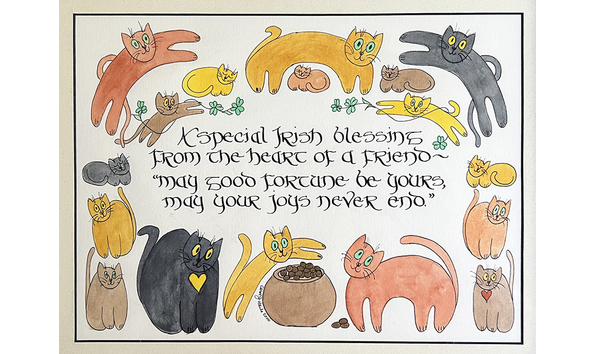 A special Irish blessing
from the heart of a friend~
"may good fortune be yours,
may your joys never end."